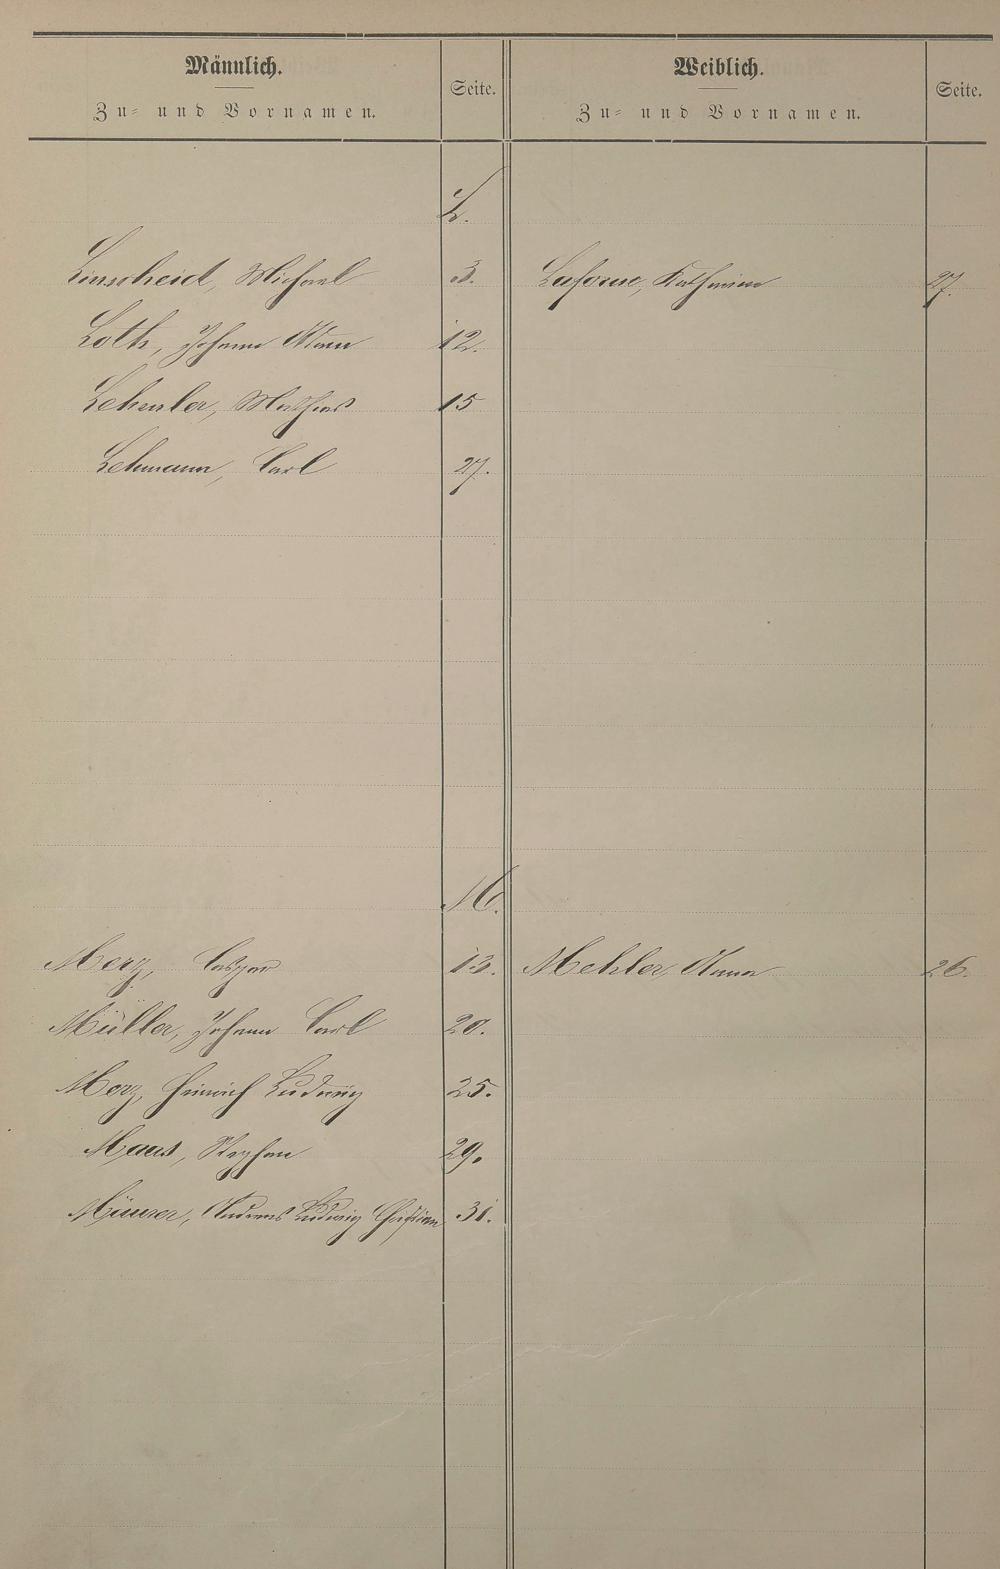 Männlich.
Zu- und Vornamen.
Seite.
Weiblich.
Zu- und Vornamen.
Seite.
L.
Linscheid, Michael 3. Katharina 27.
Loth, Johann Adam 12.
Mathias 15
Lehmann, Carl 27.
M.
Merz, Caspar 13. Mehler, Anna 26.
Müller, Johann Carl 20.
Merz, Heinrich Ludwig 25.
Maus, Stephan 29.
Andreas Ludwig Christian 31.